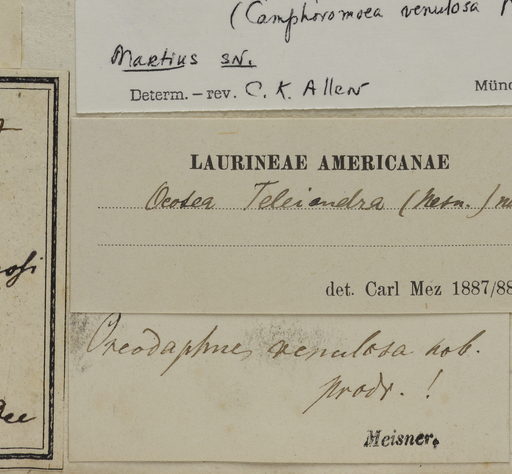 (Camphoromoea venulosa
Martius sn.
Determ. – rev. C. K. Allen
Münc
LAURINEAE AMERICANAE
Ocotea Teleiandra (Meisn.)
det. Carl Mez 1887/88
Oreodaphne venulosa nob.
prodr. !
Meisner.